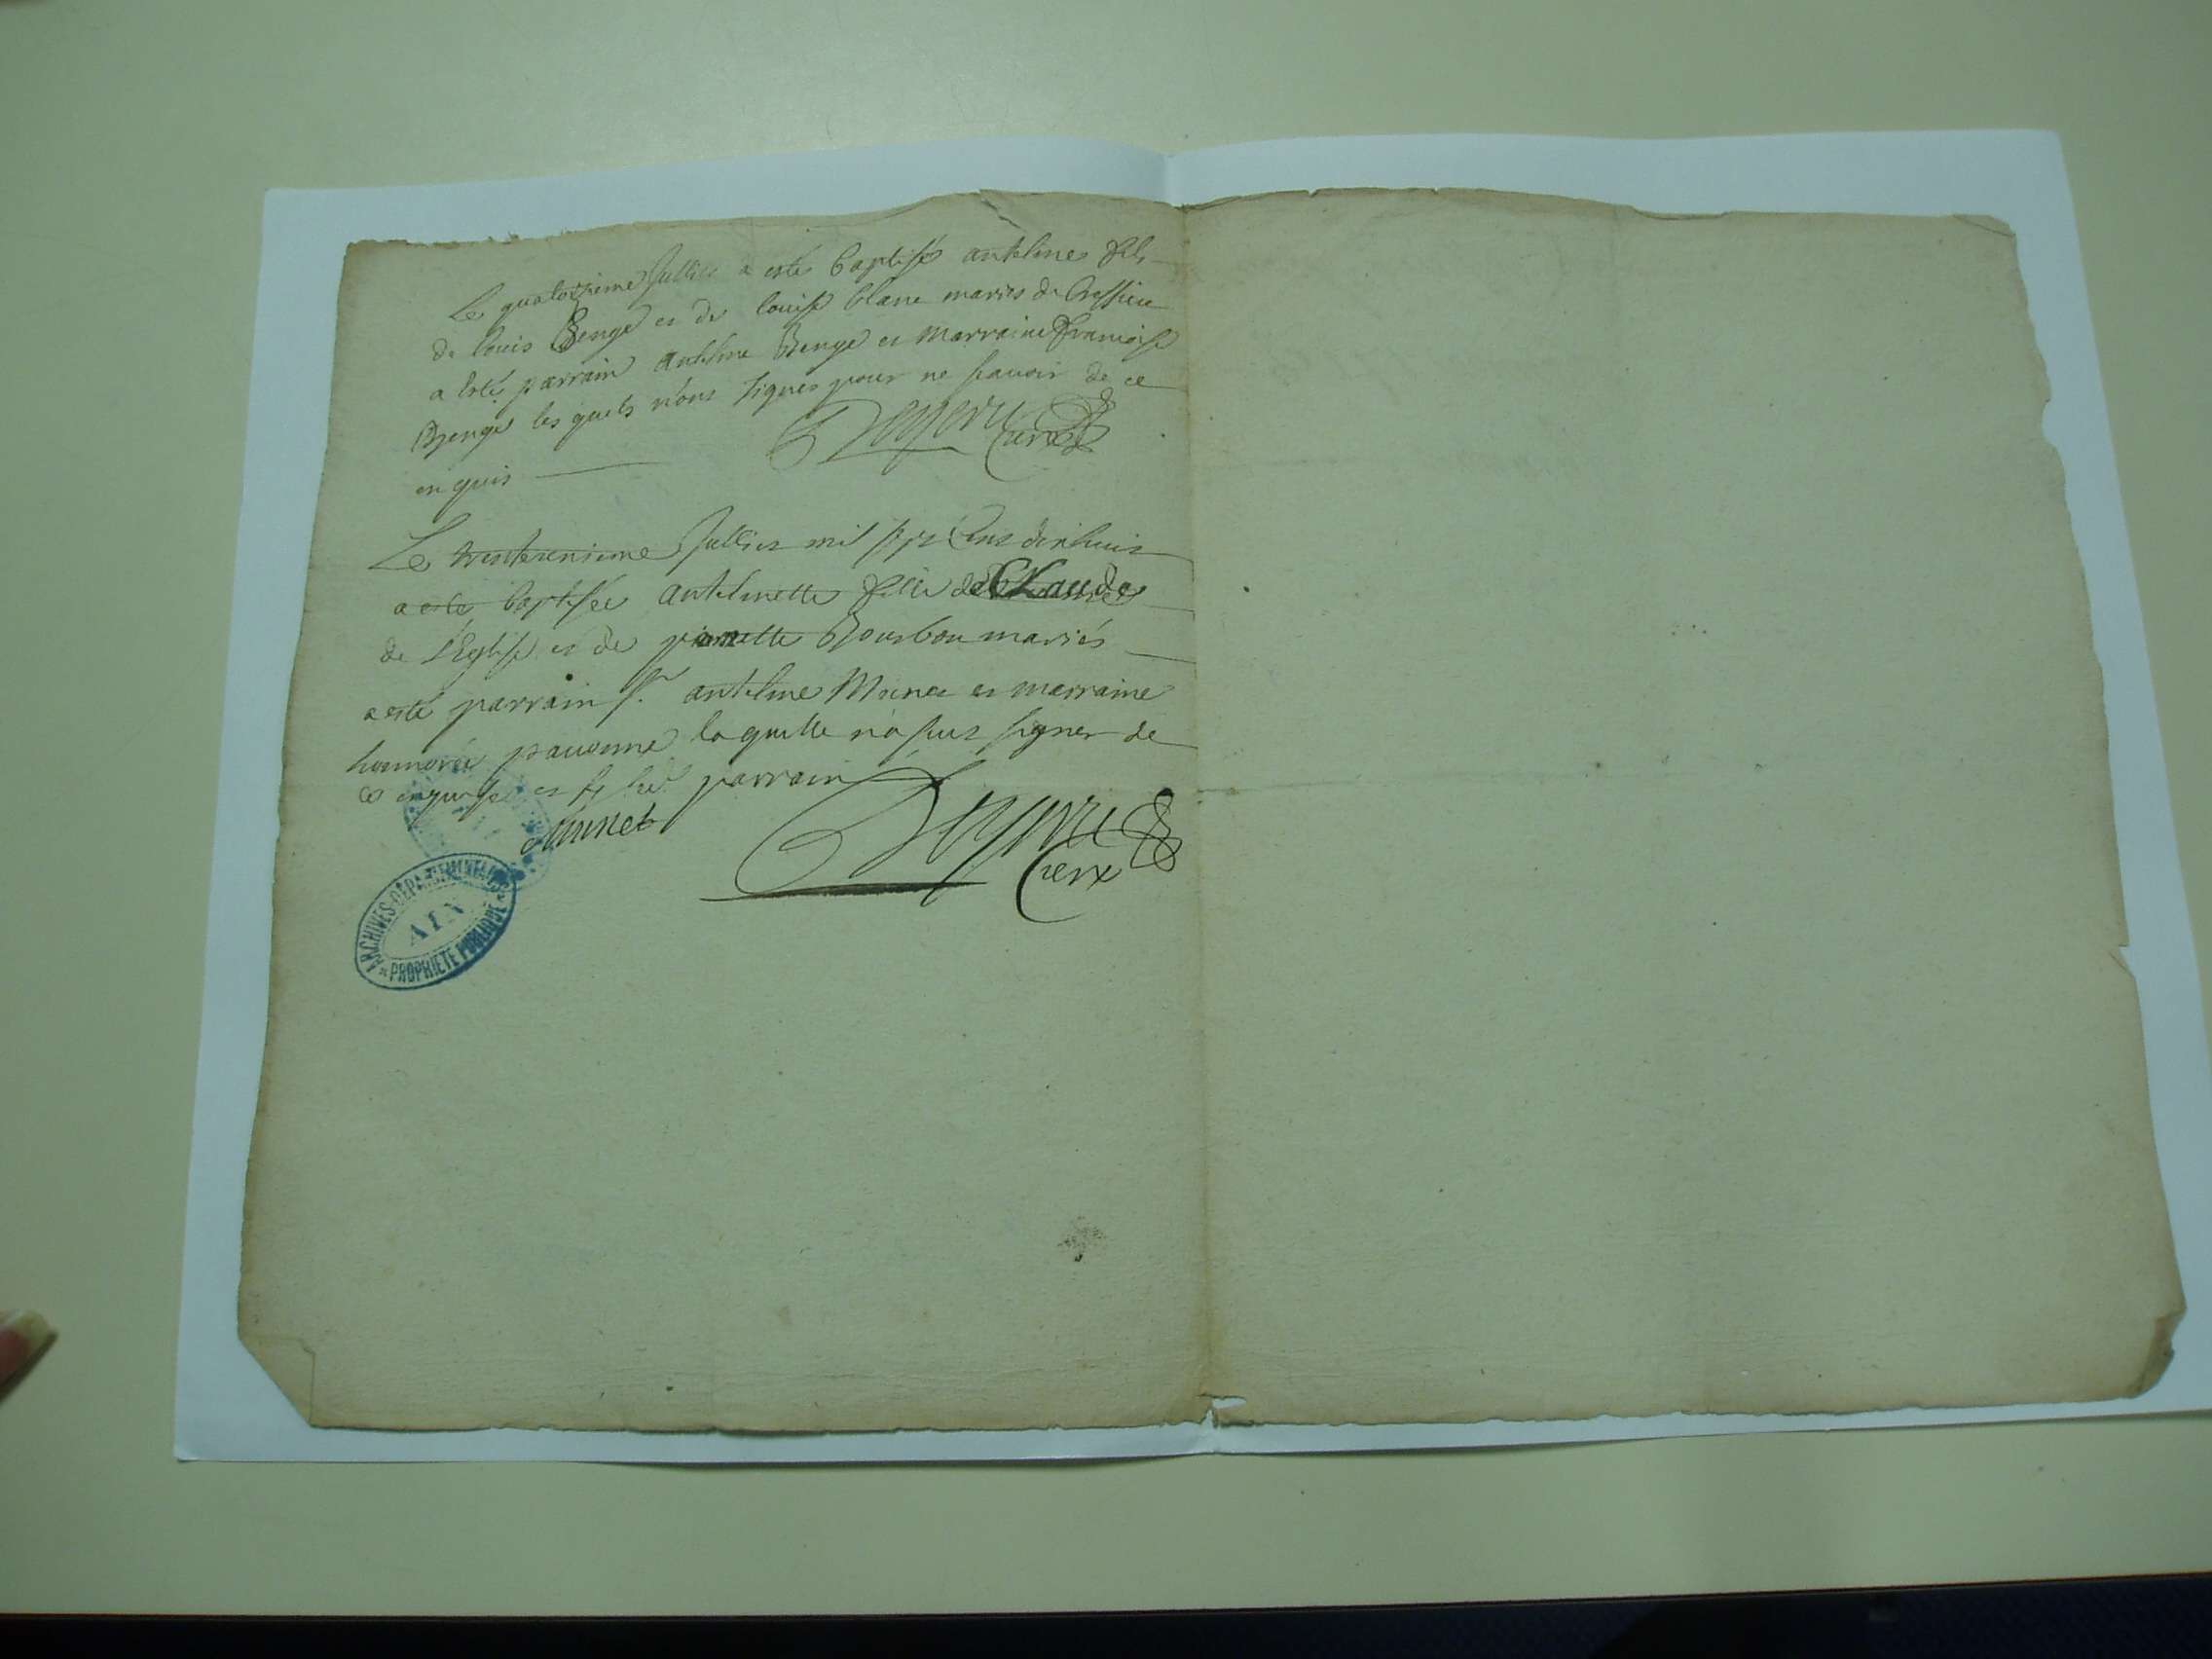 Le quatorzieme Juillet a esté baptisé anthelme fils
de louis Benge et de louise blanc mariés de Cressieu
a esté parrain anthelme Benge et marraine francoise
Benge les quels n'ont signes pour ne scauoir de ce
enquis
Curé
Le trenteunieme Juillet mil sept Cens dixhuit
a esté baptisée anthelmette fille de Claude
de l'Eglise et de pernette Bourbon mariés
a esté parrain sr. anthelme Monet et marraine
honnorée pauonne laquelle n'a sceu signer de
ce enquise et led parrain
Munet
Curé
ARCHIVES DÉPARTEMENTALES
AIN
PROPRIETE PUBLIQUE